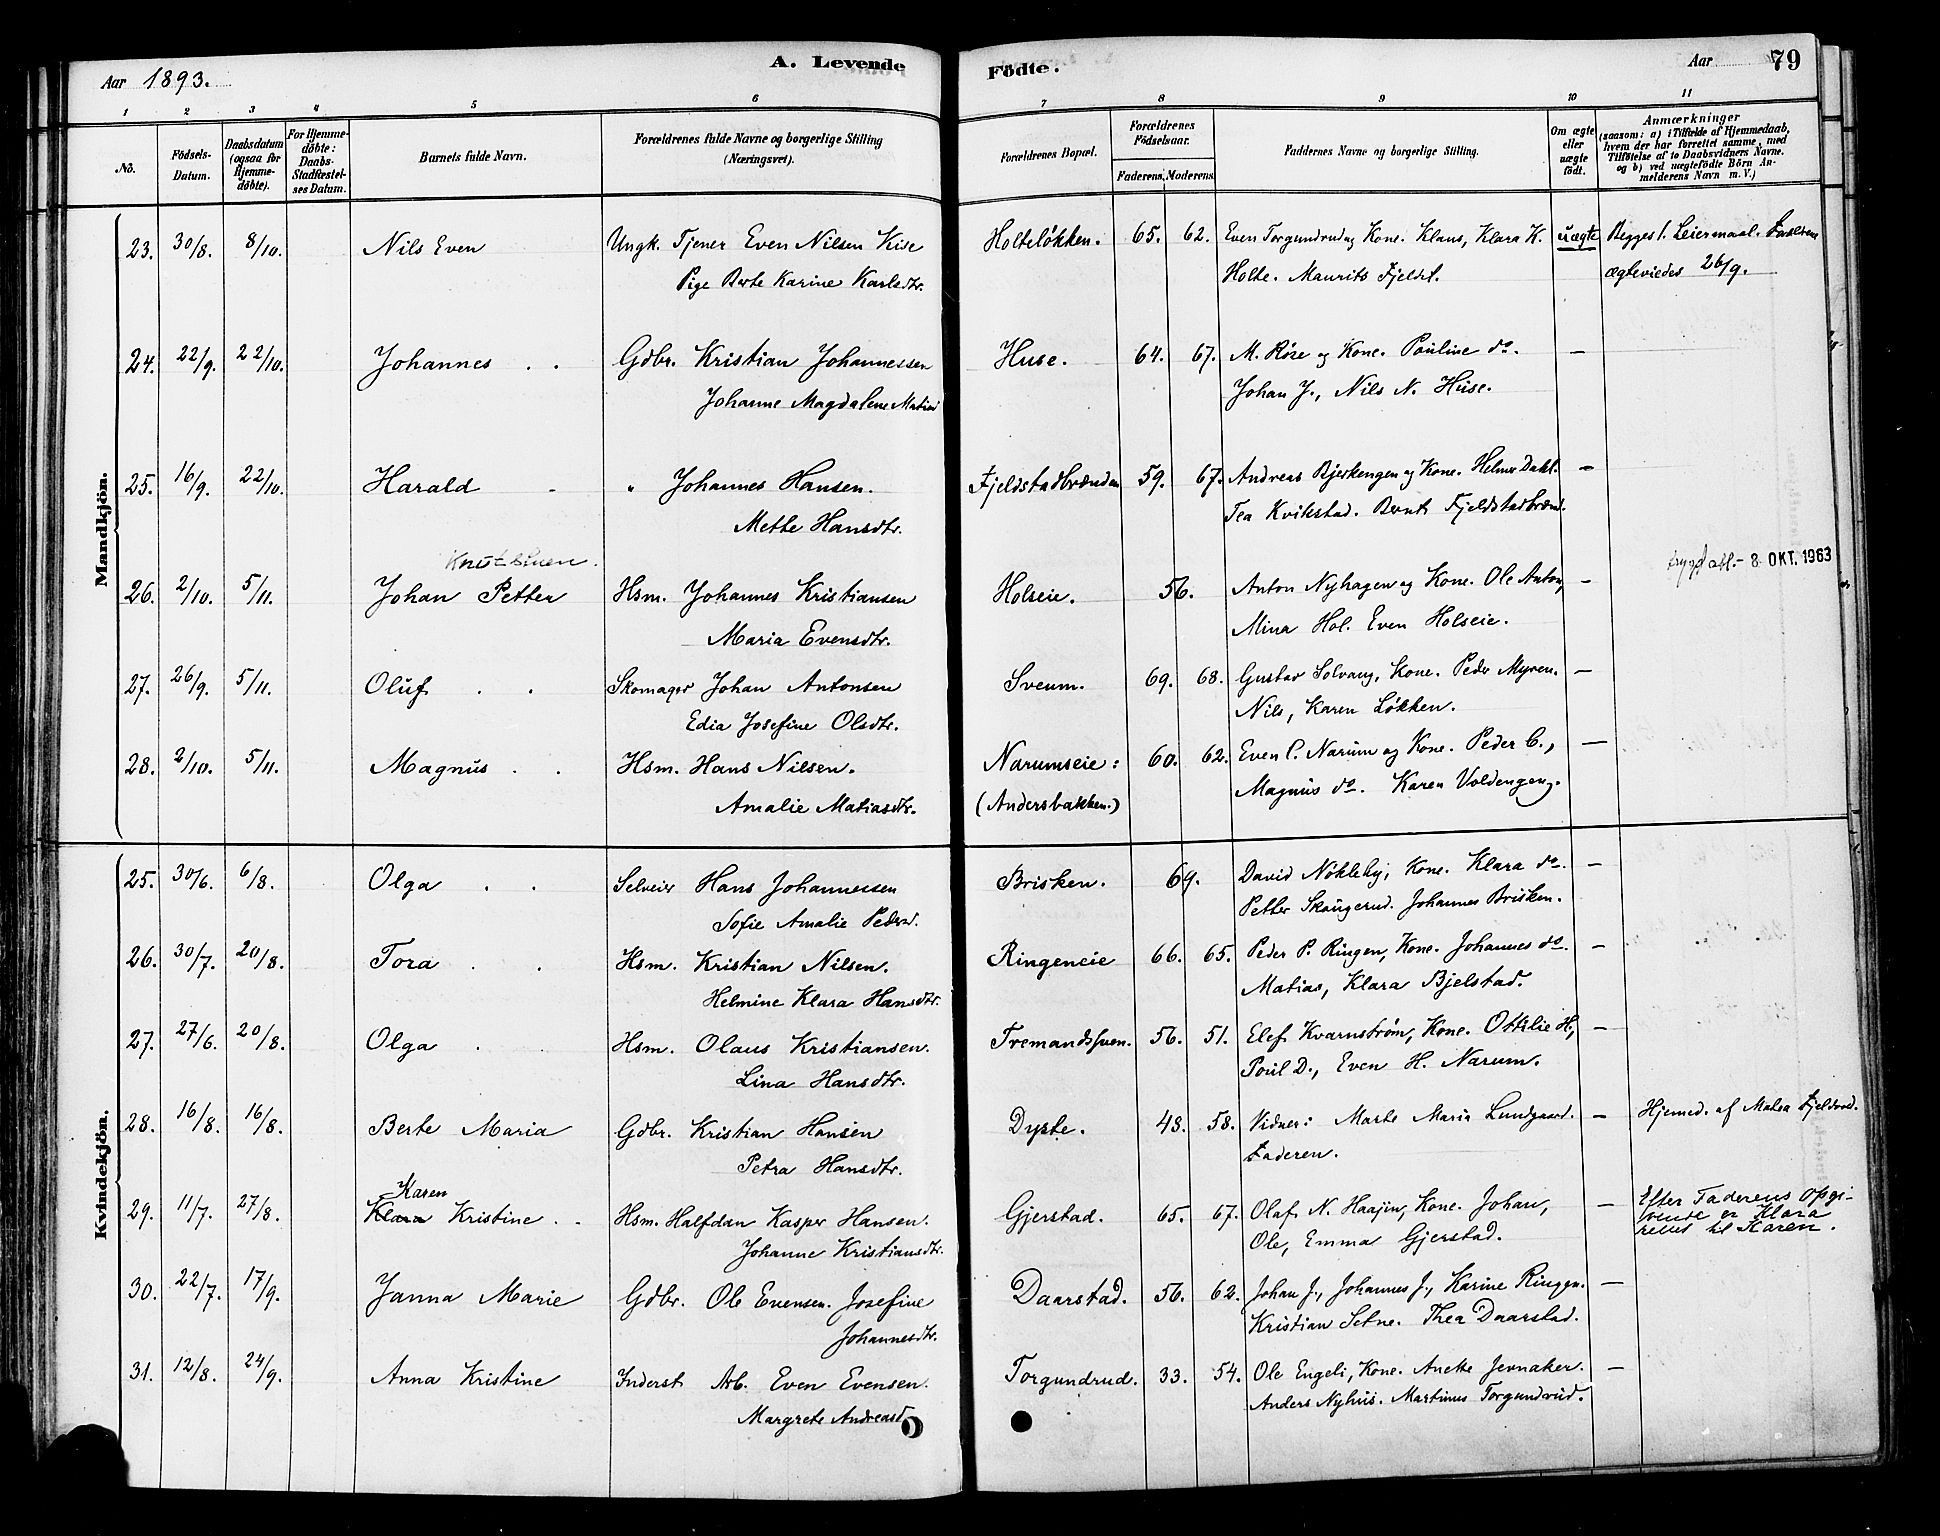 Aar 1893.
A. Levende
Fødte.
Aar
79
1 2 3 4 5 6 7 8 9 10 11
No.
Fødsels-Datum.
Daabsdatum (ogsaa for Hjemme-døbte).
For Hjemme-døbte: Daabs-Stadfæstel-ses Datum.
Barnets fulde Navn.
Forældrenes fulde Navne og borgerlige Stilling (Næringsvei).
Forældrenes Bopæl.
Forældrenes Fødselsaar.
Faderens. Moderens.
Faddernes Navne og borgerlige Stilling.
Om ægte eller uægte født.
Anmærkninger
(saasom: a) i Tilfælde af Hjemmedaab, hvem der har forrettet samme, med Tilføielse af to Daabsvidners Navne. og b) ved uægtefødte Børn An-melderens Navn m. V.)
Mandkjön.
23. 30/8. 8/10. Nils Even Ungk. Tjener Even Nilsen Kise Holteløkken. 65. 62. Even Torgundrud og Kone. Klaus, Klara K. uægte Begges 1. Leiermaal. Forældrene
Pige Berte Karine Karlsdtr. Holte. Maurits Fjeldst. ægteviedes 26/9.
24. 22/9. 22/10. Johannes Gdbr. Kristian Johannessen Huse. 64. 67. M. Røse og Kone. Pauline do. —
Johanne Magdalene Matiasd Johan J., Nils N. Huse.
25. 16/9. 22/10. Harald " Johannes Hansen. Fjeldstadbrænden 59. 67. Andreas Bjerkengen og Kone. Helmer Dahl. —
Mette Hansdtr. Tea Kvikstad. Bernt Fjeldstadbrænd.
Knutstuen.
26. 2/10. 5/11. Johan Petter Hsm. Johannes Kristiansen Holseie. 56. Anton Nyhagen og Kone. Ole Anton, — trygd att. - 8. OKT. 1963
Maria Evensdtr. Mina Hol. Even Holseie.
27. 26/9. 5/11. Oluf Skomager Johan Antonsen Sveum. 69. 68. Gustav Solvang, Kone. Peder Myren. —
Edia Josefine Olsdtr. Nils, Karen Løkken.
28. 2/10. 5/11. Magnus Hsm. Hans Nilsen. Narumseie: 60. 62. Even C. Narum og Kone. Peder C., —
Amalie Matiasdtr. (Andersbakken.) Magnus do. Karen Voldengen.
Kvindekjön.
25. 30/6. 6/8. Olga Selveier Hans Johannessen Brisken. 69. David Nøkleby, Kone. Klara do. —
Sofie Amalie Pedersd. Petter Skougerud. Johannes Brisken.
26. 30/7. 20/8. Tora Hsm. Kristian Nilsen. Ringeneie 66. 65. Peder P. Ringen, Kone. Johannes do. —
Helmine Klara Hansdtr. Matias, Klara Bjelstad.
27. 27/6. 20/8. Olga Hsm. Olaus Kristiansen. 56. 51. Elef Kvarnstrøm, Kone. Ottilie H., —
Lina Hansdtr. Poul D., Even H. Narum.
28. 16/8. 16/8. Berte Maria Gdbr. Kristian Hansen Dyste. 48. 58. Vidner: Marte Maria Lundgaard. — Hjemed. af Matea
Petra Hansdtr. Faderen.
Karen
29. 11/7. 27/8. Klara Kristine Hsm. Halfdan Kasper Hansen. Gjerstad. 65. 67. Olaf N. Kone. Johan, — Efter Faderens opgi-
Johanne Kristiansdtr. Ole, Emma Gjerstad. vende er Klara
rettes til Karen.
30. 22/7. 17/9. Janna Marie Gdbr. Ole Evensen. Josefine Daarstad. 56. 62. Johan J., Johannes J., Karine Ringen. —
Johannesdtr. Kristian Setne. Thea Daarstad.
31. 12/8. 24/9. Anna Kristine Inderst Arb. Even Evensen. Torgundrud. 33. 54. Ole Engeli, Kone. Anette Jevnaker. —
Margrete Andreasd Anders Nyhus. Martinus Torgundrud.